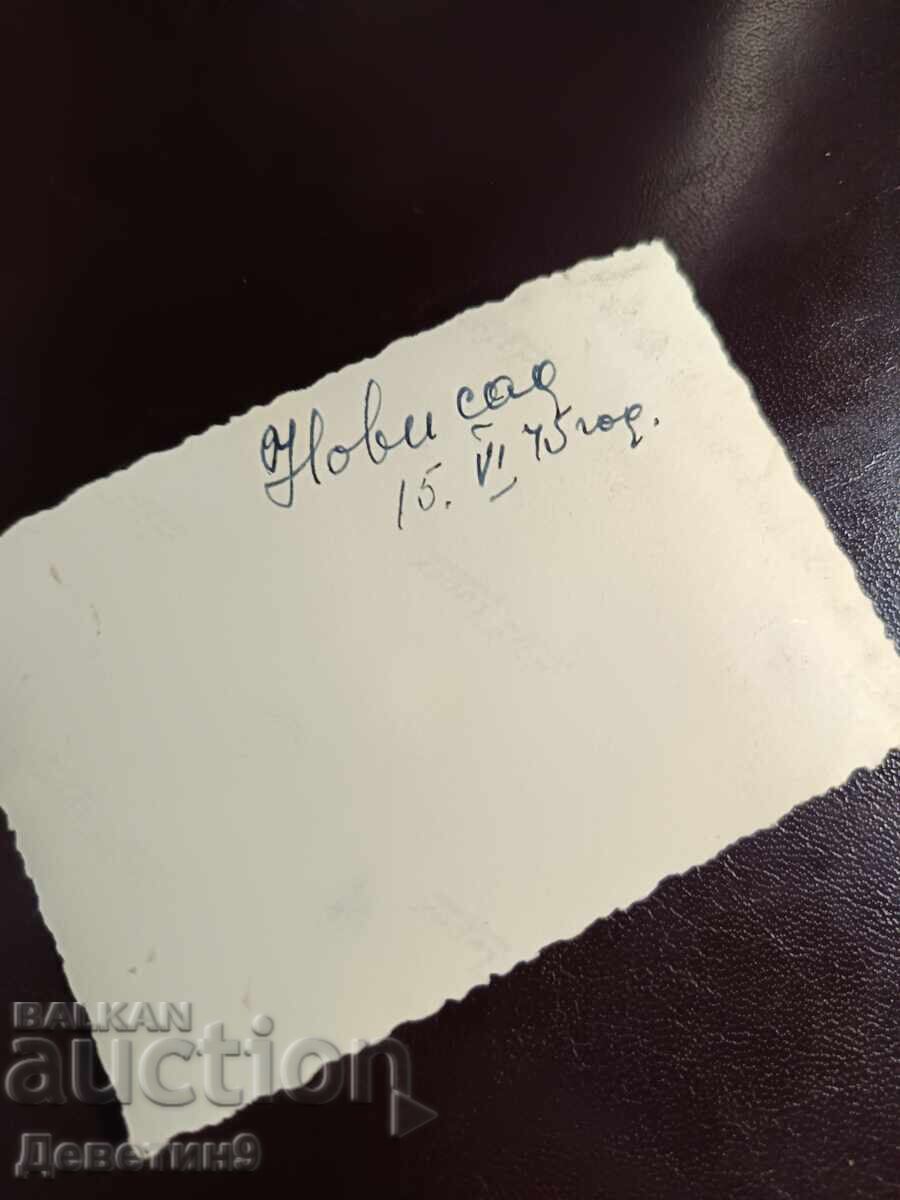 Нови сад
15. VI 45 год.
BALKAN
auction
Деветин9